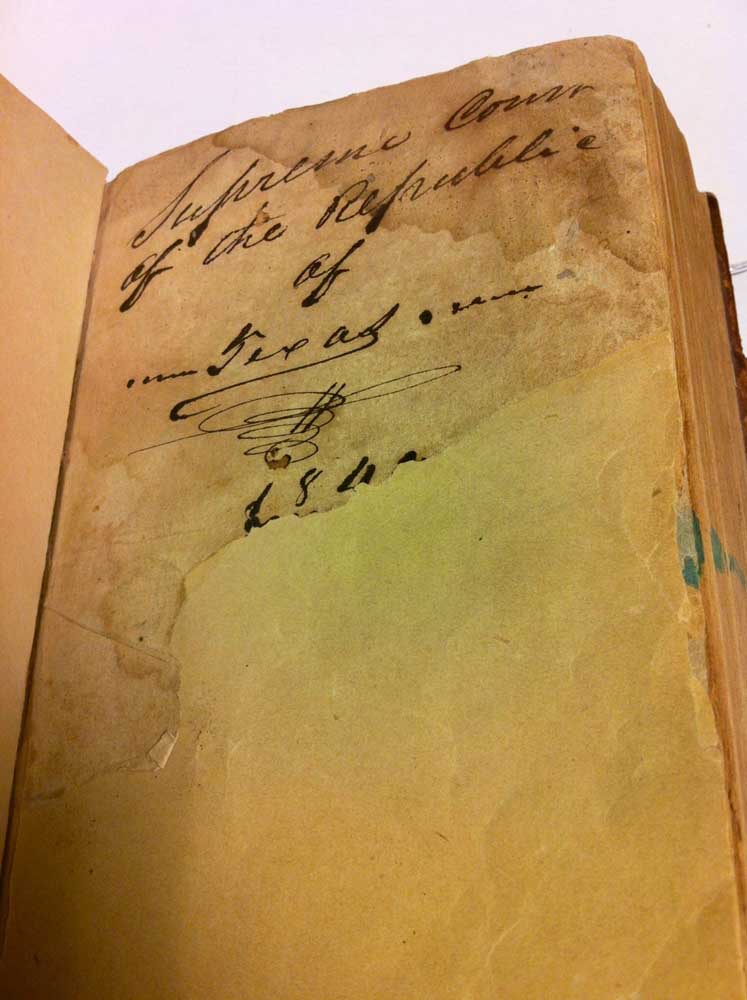 Supreme Cour
of the Republic
of
Texas
1840